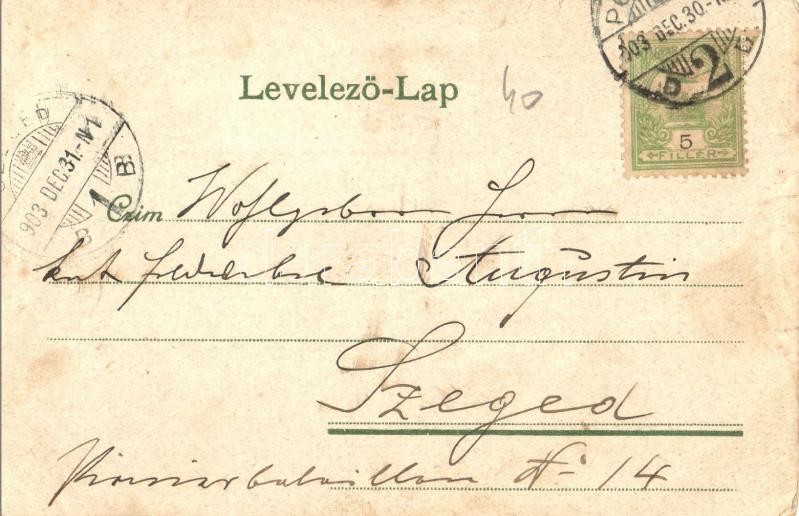 Levelező-Lap
40
903 DEC.30.-N
2
D B
5
FILLÉR
903 DEC.31.-N1
1 B
B
Czim Wohlgeboren Herrn
Augustin
Szeged
Pionierbataillon No 14